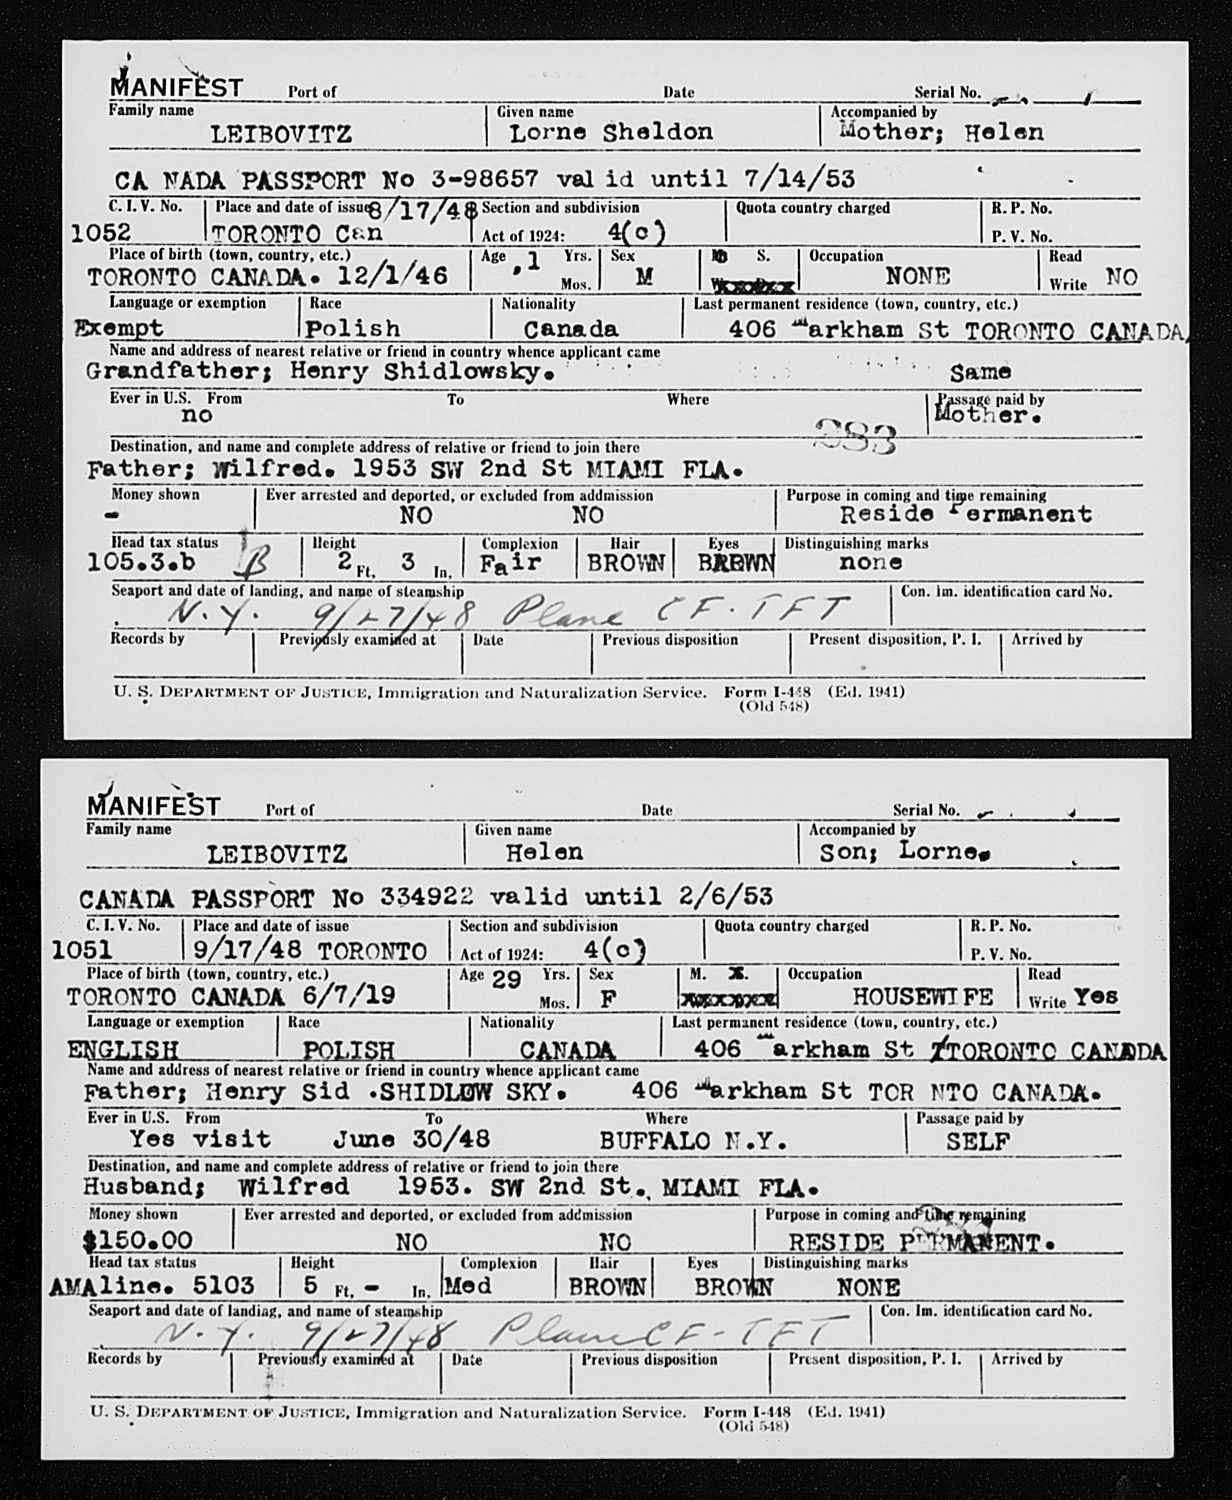 MANIFEST Port of Date Serial No.
Family name Given name Accompanied by
LEIBOVITZ Lorne Sheldon Mother; Helen
CA NADA PASSPORT No 3-98657 val id until 7/14/53
C. I. V. No. Place and date of issue 8/17/48 Section and subdivision Quota country charged R. P. No.
1052 TORONTO Can Act of 1924: 4(c) P. V. No.
Place of birth (town, country, etc.) Age 1 Yrs. Sex S. Occupation Read
TORONTO CANADA. 12/1/46 Mos. M NONE Write NO
Language or exemption Race Nationality Last permanent residence (town, country, etc.)
Exempt Polish Canada 406 Markham St TORONTO CANADA
Name and address of nearest relative or friend in country whence applicant came
Grandfather; Henry Shidlowsky. Same
Ever in U.S. From To Where Passage paid by
no Mother.
283
Destination, and name and complete address of relative or friend to join there
Father; Wilfred. 1953 SW 2nd St MIAMI FLA.
Money shown Ever arrested and deported, or excluded from addmission Purpose in coming and time remaining
- NO NO Reside Permanent
Head tax status Height Complexion Hair Eyes Distinguishing marks
105.3.b B 2 Ft. 3 In. Fair BROWN BROWN none
Seaport and date of landing, and name of steamship Con. Im. identification card No.
N.Y. 9/27/48 Plane CF-TFT
Records by Previously examined at Date Previous disposition Present disposition, P. I. Arrived by
U. S. DEPARTMENT OF JUSTICE, Immigration and Naturalization Service. Form I-448 (Ed. 1941)
(Old 548)
MANIFEST Port of Date Serial No.
Family name Given name Accompanied by
LEIBOVITZ Helen Son; Lorne.
CANADA PASSPORT No 334922 valid until 2/6/53
C. I. V. No. Place and date of issue Section and subdivision Quota country charged R. P. No.
1051 9/17/48 TORONTO Act of 1924: 4(c) P. V. No.
Place of birth (town, country, etc.) Age 29 Yrs. Sex M. S. Occupation Read
TORONTO CANADA 6/7/19 Mos. F HOUSEWIFE Write Yes
Language or exemption Race Nationality Last permanent residence (town, country, etc.)
ENGLISH POLISH CANADA 406 Markham St TORONTO CANADA
Name and address of nearest relative or friend in country whence applicant came
Father; Henry Sid .SHIDLOW SKY. 406 Markham St TOR NTO CANADA.
Ever in U.S. From To Where Passage paid by
Yes visit June 30/48 BUFFALO N.Y. SELF
Destination, and name and complete address of relative or friend to join there
Husband; Wilfred 1953. SW 2nd St., MIAMI FLA.
Money shown Ever arrested and deported, or excluded from addmission Purpose in coming and time remaining
$150.00 NO NO RESIDE PERMANENT.
Head tax status Height Complexion Hair Eyes Distinguishing marks
AMAline. 5103 5 Ft. - In. Med BROWN BROWN NONE
Seaport and date of landing, and name of steamship Con. Im. identification card No.
N.Y. 9/27/48 Plane CF-TFT
Records by Previously examined at Date Previous disposition Present disposition, P. I. Arrived by
U. S. DEPARTMENT OF JUSTICE, Immigration and Naturalization Service. Form I-448 (Ed. 1941)
(Old 548)